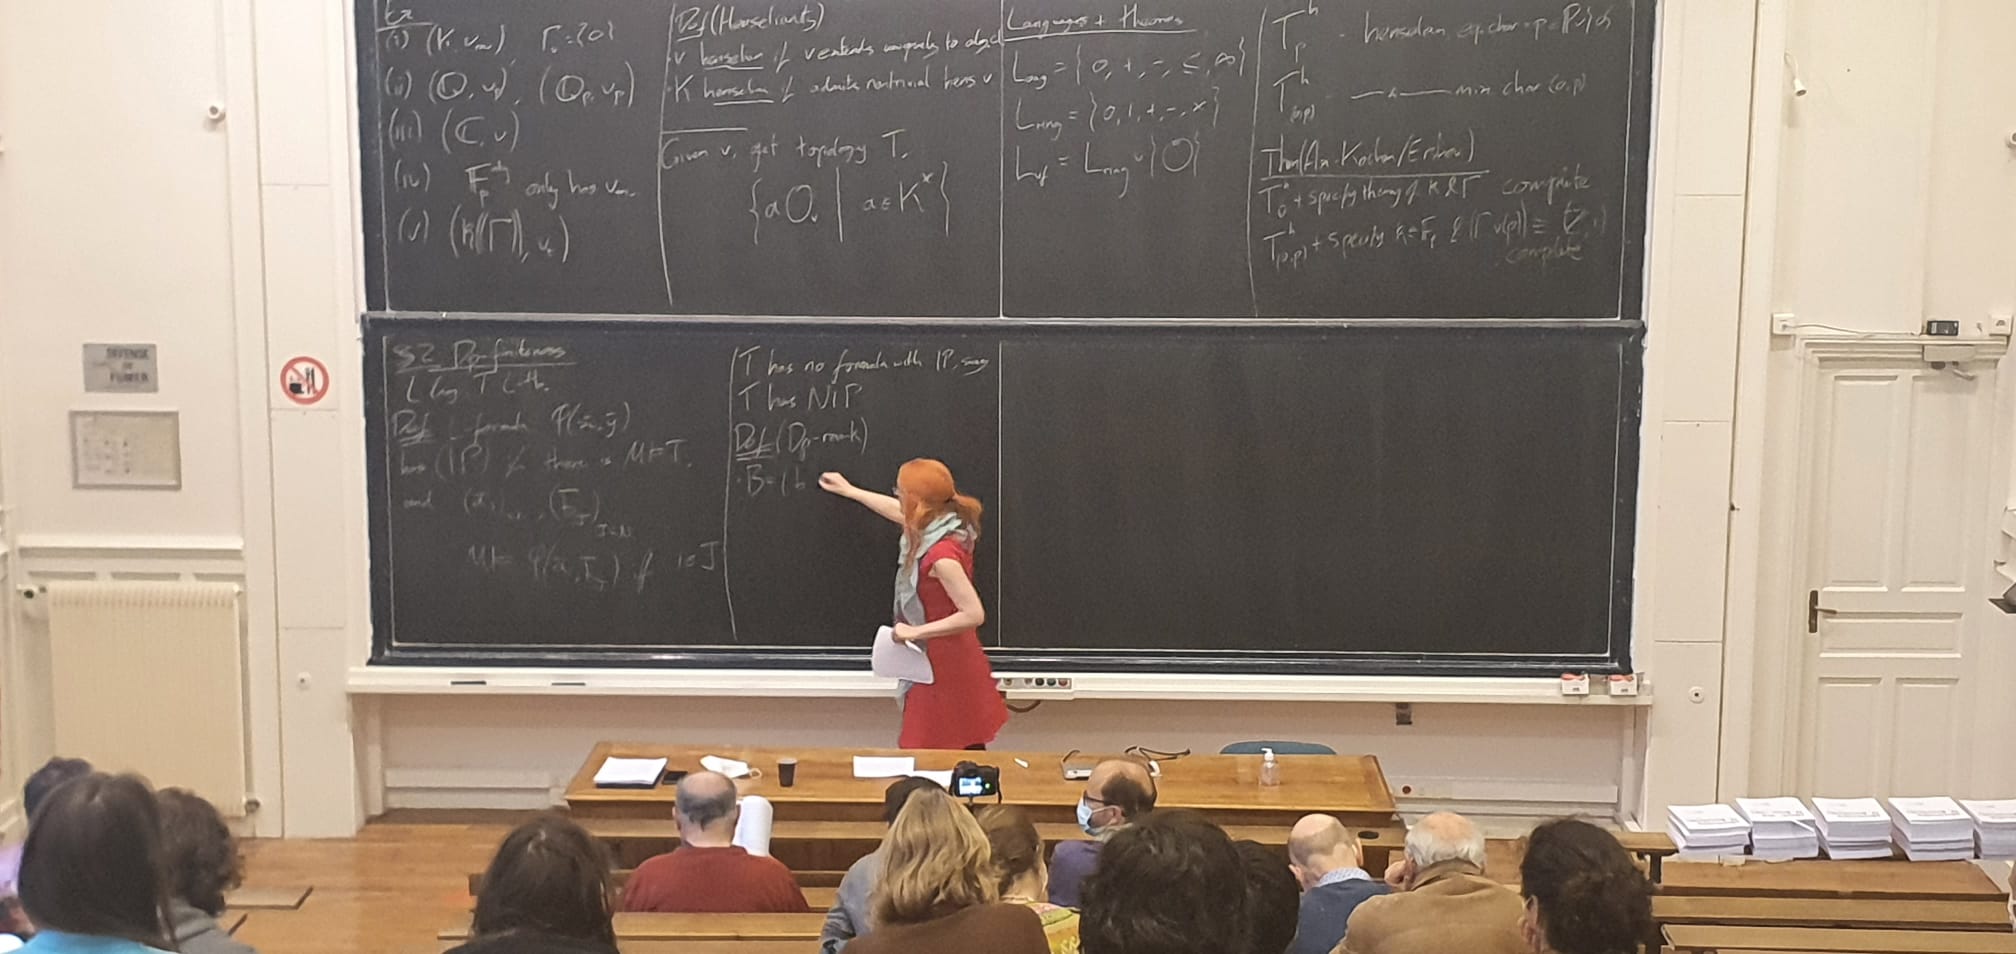 Ex
(i) (K, v
Γ = {0}
(ii) (Q, v_p), (Q_p, v_p)
(iii) (C, v)
(iv) F_p only has
(v) (k((Γ)), v_t)
Def (Henselianity)
· v henselian if v extends uniquely to
· K henselian if admits nontrivial hens v
Given v, get topology T_v
{aO_v | a ∈ K^×}
Languages + theories
L_oag = {0, +, -, ≤, ∞}
L_ring = {0, 1, +, -, ×}
L_vf = L_ring ∪ {O}
T_p^h - henselian, eq. char = p
T_(0,p)^h - mix. char (0,p)
Thm (Ax-Kochen/Ershov)
T_0^h + specify theory of k & Γ complete
T_(0,p)^h + specify k = F_p & (Γ, v(p)) ≡ (Z, 1)
complete
§2 Dp-finiteness
L lang. T L-th.
Def L-formula φ(x̄, ȳ)
has (IP) if there is M ⊨ T.
and
M ⊨ φ( ) if i ∈ J
T has no formula with IP, say
T has NIP
Def (Dp-rank)
· B = (b
DEFENSE
DE
FUMER